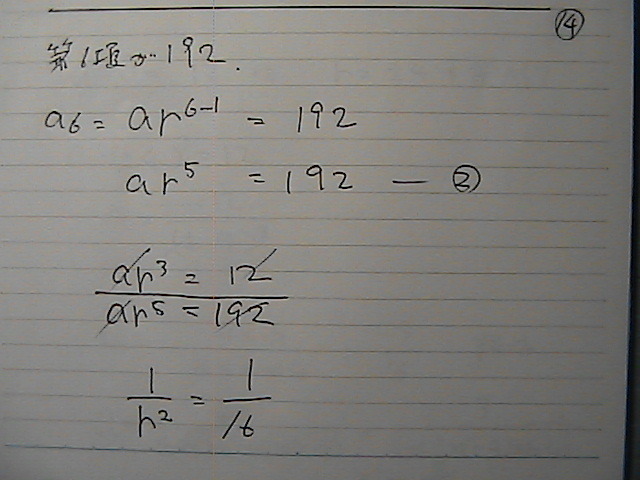 ⑭
第6項が…192.
a6 = ar^6-1 = 192
ar^5 = 192 — ②
ar^3 = 12
ar^5 = 192
1/r^2 = 1/16